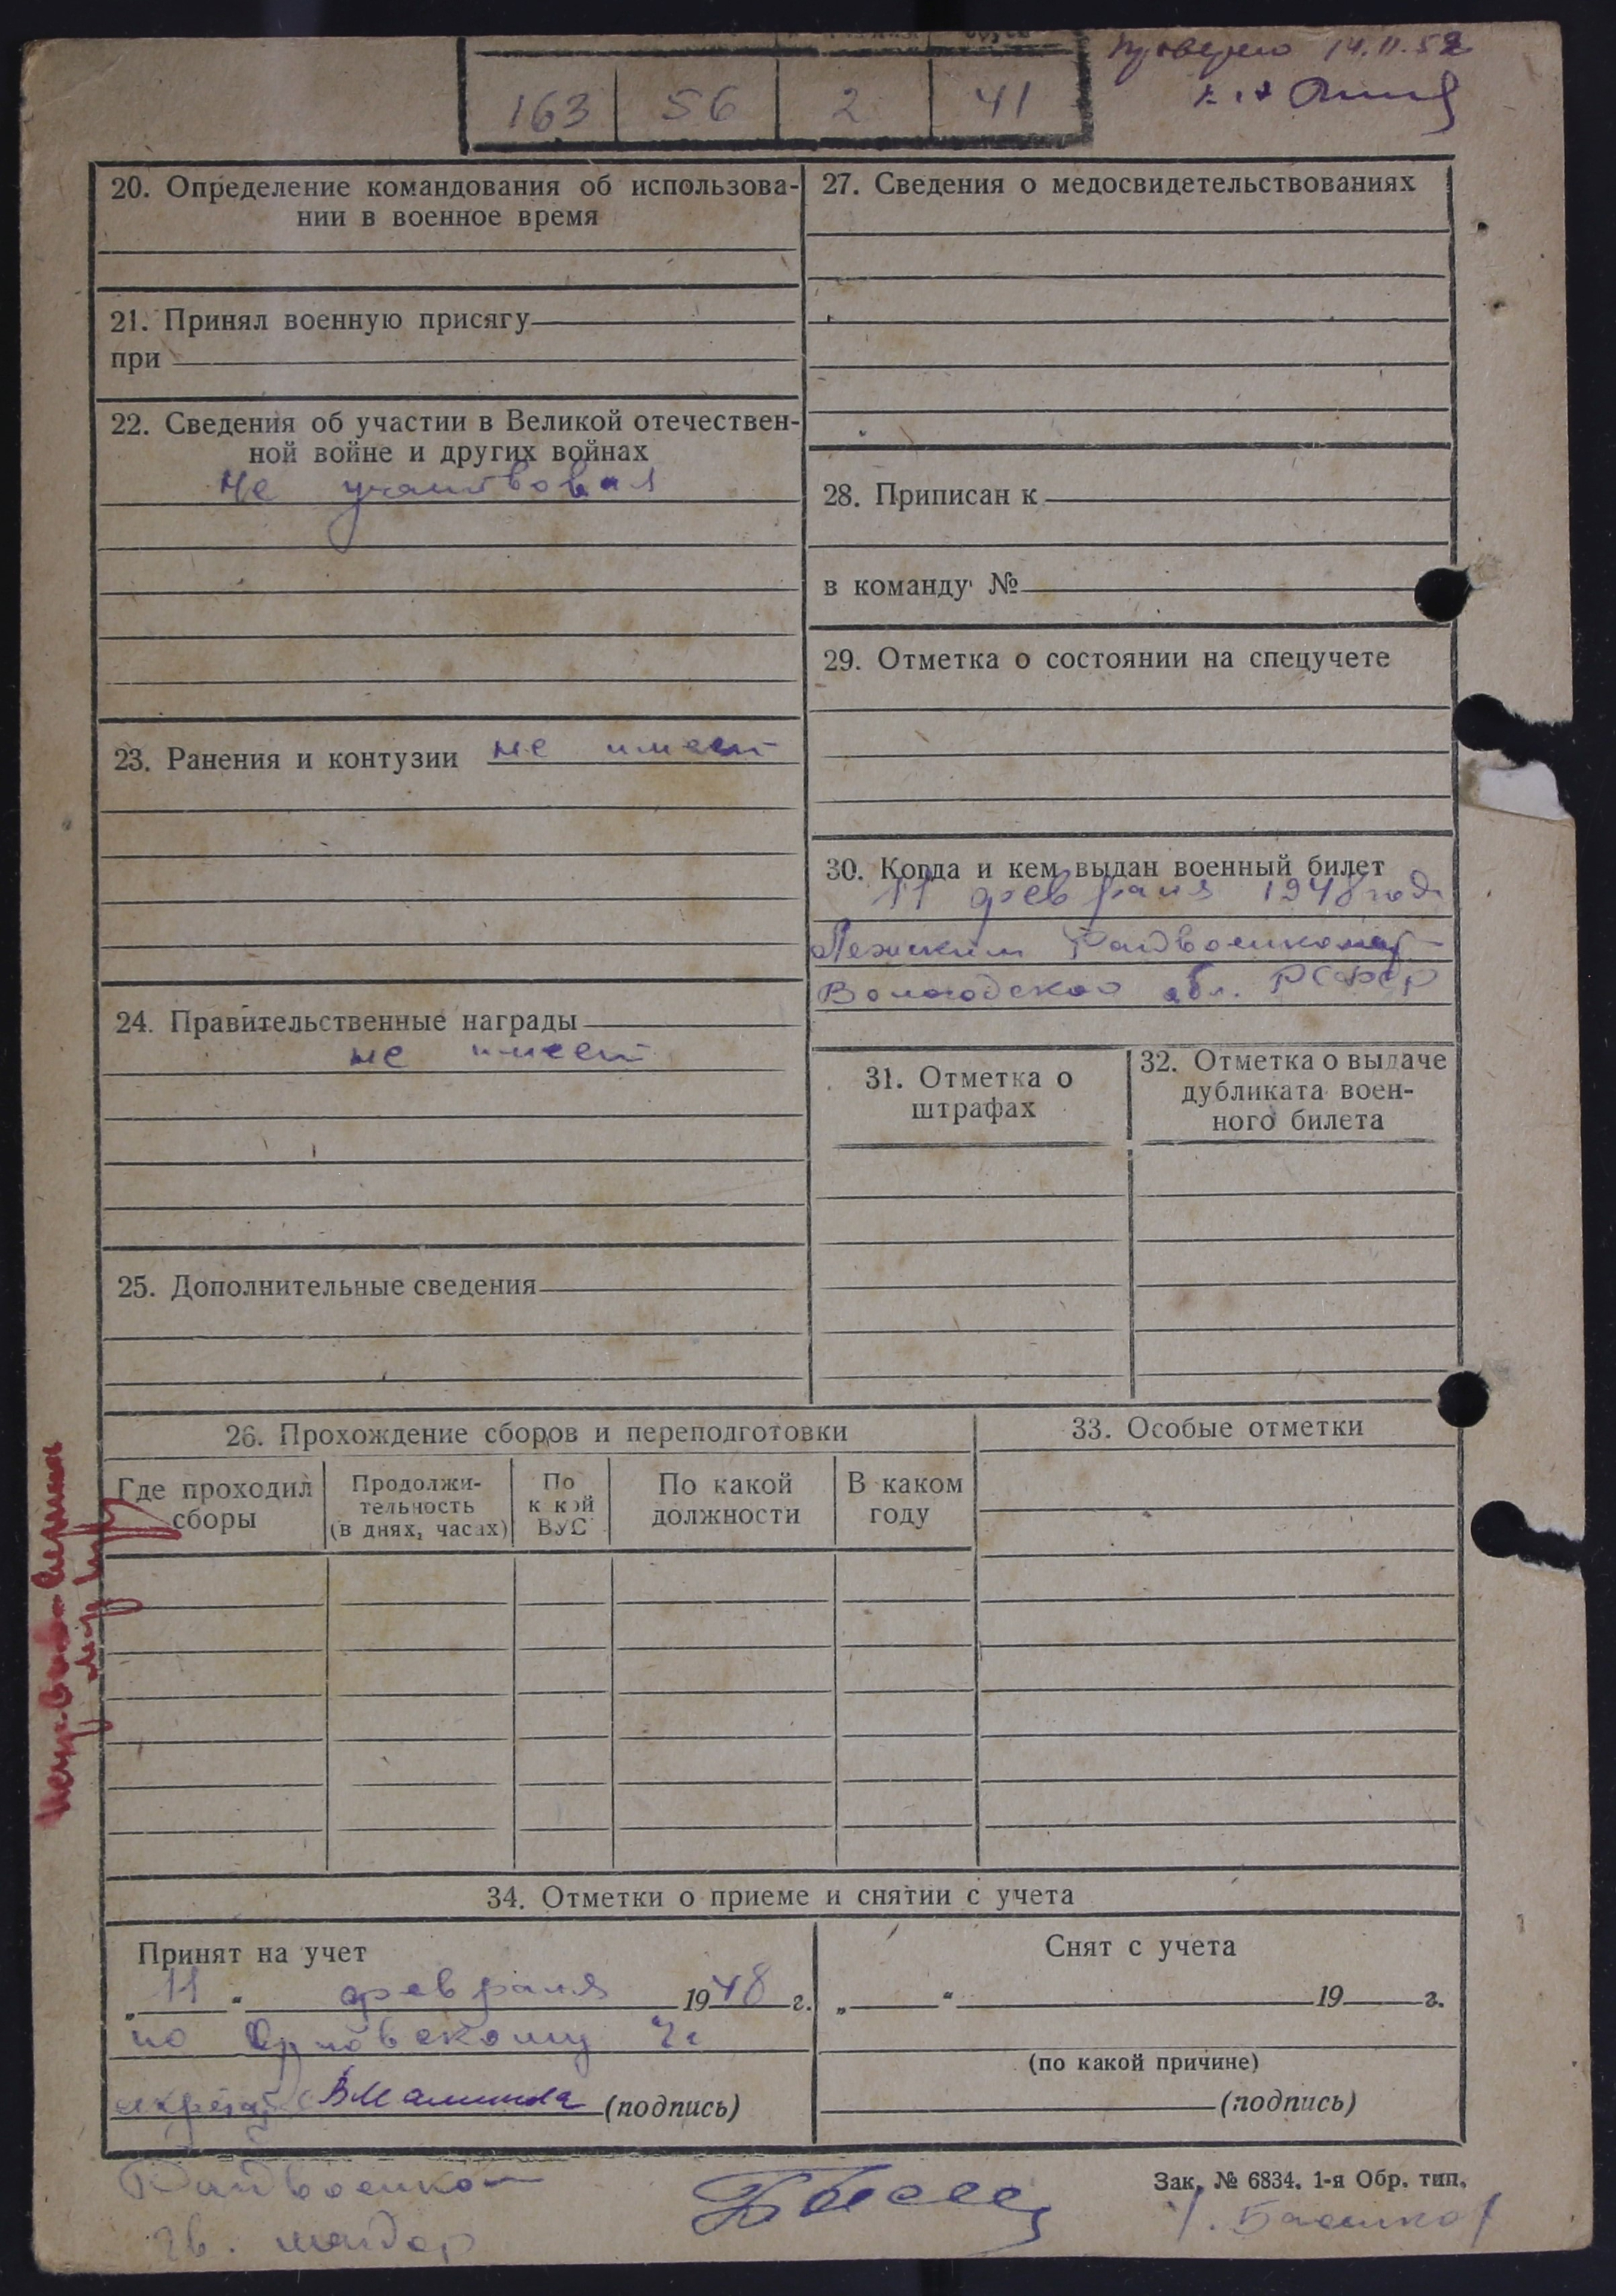 Проверено 14.11.52
163 56 2 41
20. Определение командования об использова-
нии в военное время
21. Принял военную присягу
при
22. Сведения об участии в Великой отечествен-
ной войне и других войнах
Не участвовал
23. Ранения и контузии не имеет
24. Правительственные награды
не имеет
25. Дополнительные сведения
27. Сведения о медосвидетельствованиях
28. Приписан к
в команду №
29. Отметка о состоянии на спецучете
30. Когда и кем выдан военный билет
11 февраля 1948 года
Лежским Райвоенкомат
Вологодской обл. РСФСР
31. Отметка о
штрафах
32. Отметка о выдаче
дубликата воен-
ного билета
26. Прохождение сборов и переподготовки
Где проходил
сборы
Продолжи-
тельность
(в днях, часах)
По
к кой
ВУС
По какой
должности
В каком
году
33. Особые отметки
34. Отметки о приеме и снятии с учета
Принят на учет
„ 11 “ февраля 1948 г.
по
(подпись)
Снят с учета
„ “ 19 г.
(по какой причине)
(подпись)
Райвоенком
гв. майор
Зак. № 6834. 1-я Обр. тип.